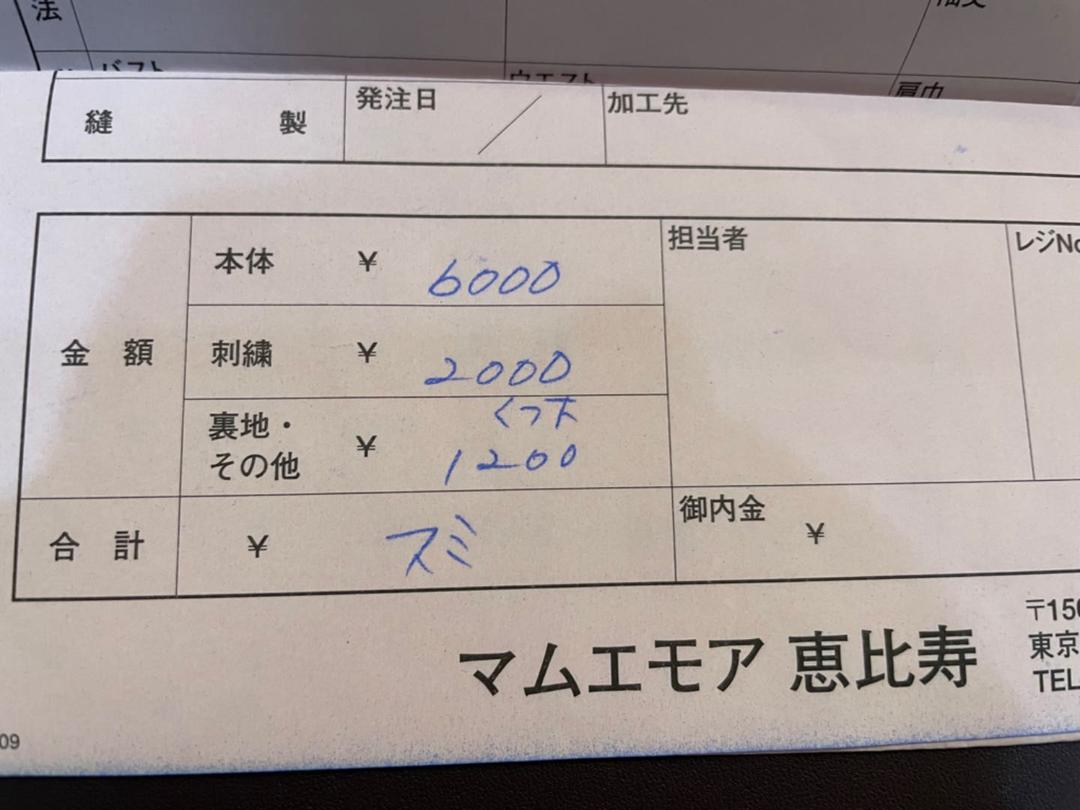 法
バスト
ウエスト
肩巾
縫 製
発注日 /
加工先
金 額
本体 ¥ 6000
刺繍 ¥ 2000
裏地・その他 ¥ くつ下 1200
合 計 ¥ スミ
担当者
レジNo
御内金 ¥
マムエモア 恵比寿
〒150
東京
TEL
09